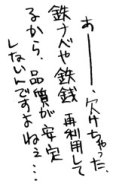 あーー、欠けちゃった、
鉄ナベや鉄銭再利用して
るから、品質が安定
しないんですよねぇ…